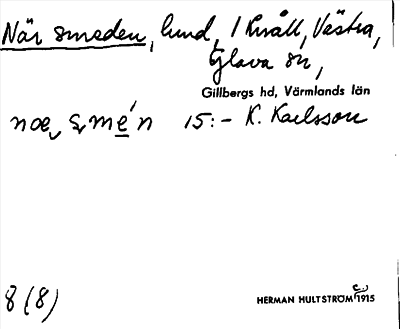 När smeden, lund, i Kråll, Västra,
Glava sn,
Gillbergs hd, Värmlands län
15:- K. Karlsson
8 (8)
HERMAN HULTSTRÖM 1915